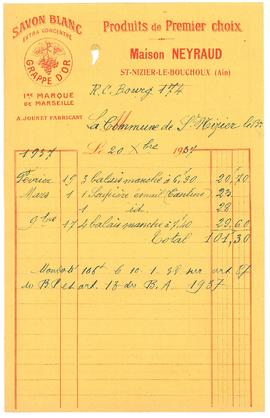 SAVON BLANC
EXTRA CONCENTRÉ
GRAPPE D'OR
1RE MARQUE
DE MARSEILLE
A. JOUNET FABRICANT
Produits de Premier choix
Maison NEYRAUD
ST-NIZIER-LE-BOUCHOUX (Ain)
R.C. Bourg 174
La Commune de St Nizier le Bx
1937 Le 20 Xbre 1937
Février 19 3 balais manche à 6.90 20,70
Mars 1 1 Soupière émail (Cantine) 23
1 1 id. 28
9bre 17 4 balais manche à 7.40 29,60
Total 101,30
Mandat 106 6.10.1.38 sur art 37
du BP et art 13 des B.A 1937